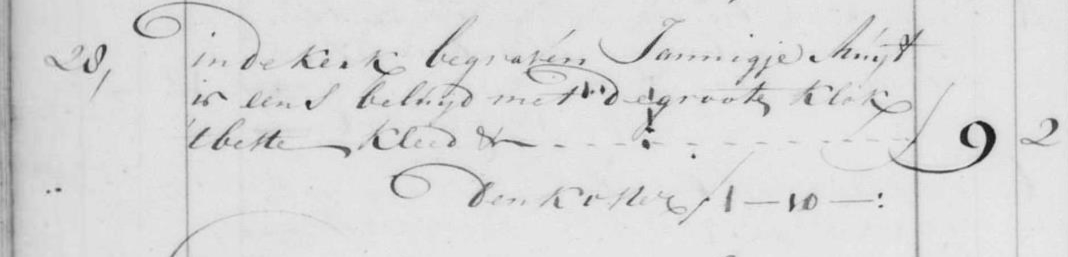 28, in de kerk begraven Jannigje Muijt
is eens beluyd met de groote klok
t beste kleed & - - - - - - - - - - 9 2
den koster ƒ 1 — 10 — :